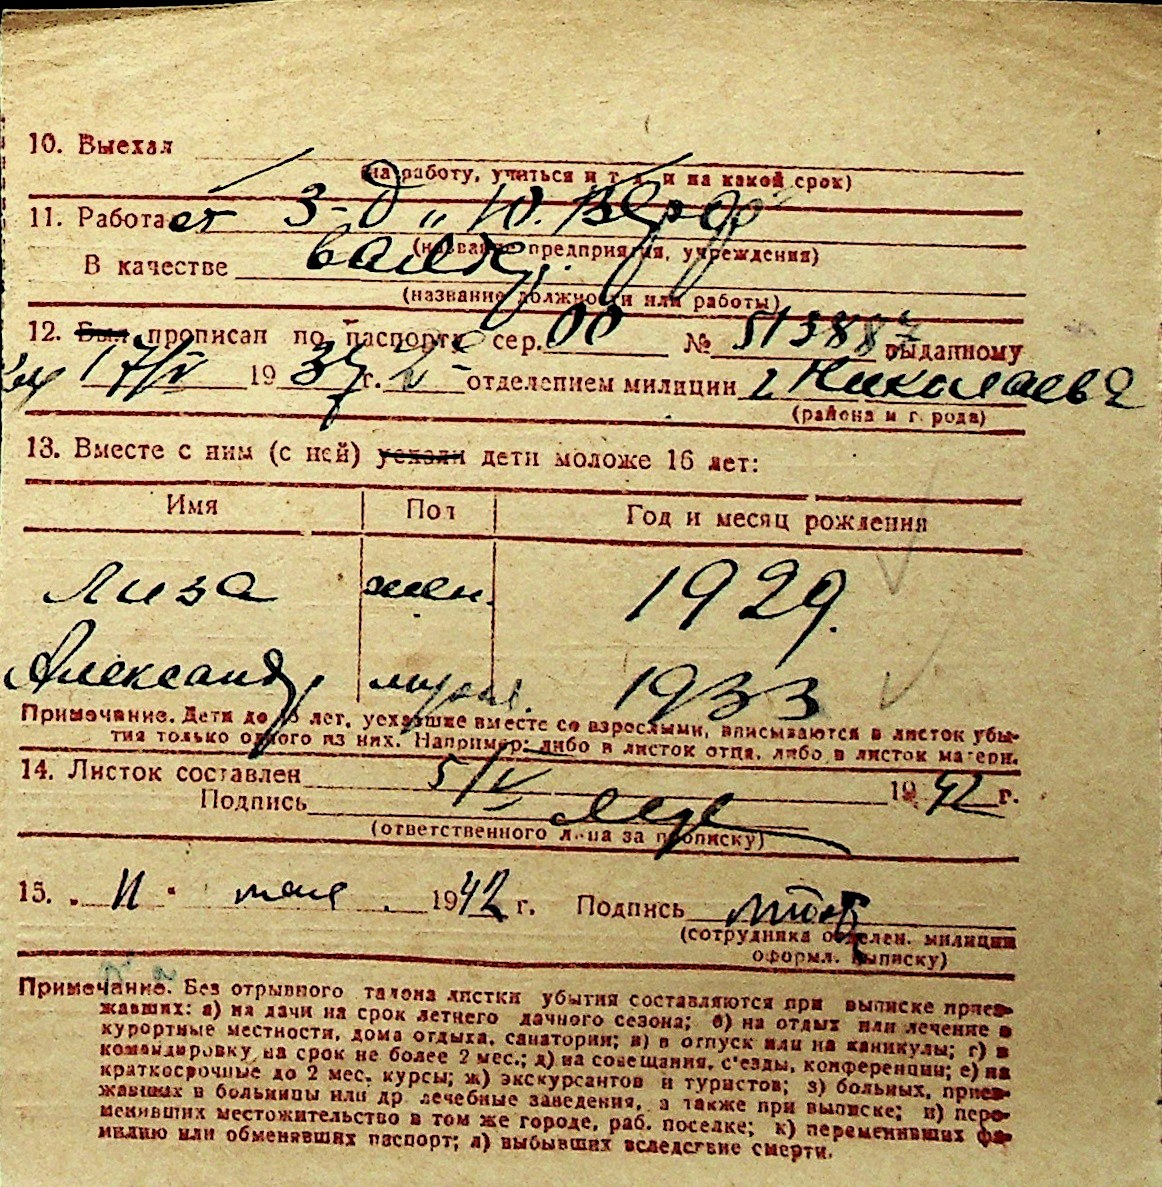 10. Выехал
(на работу, учиться и т. д. и на какой срок)
11. Работает З-д „Ю.
(название предприятия, учреждения)
В качестве
(название должности или работы)
12. Был прописан по паспорту сер. 00 № 513887 выданному
17/V 1937 г. 2- отделением милиции г Николаева
(района и города)
13. Вместе с ним (с ней) уехали дети моложе 16 лет:
Имя Пол Год и месяц рождения
Лиза жен. 1929.
Александр муж. 1933
Примечание. Дети до 16 лет, уехавшие вместе со взрослыми, вписываются в листок убы-
тия только одного из них. Например: либо в листок отца, либо в листок матери.
14. Листок составлен 5/V 1942 г.
Подпись
(ответственного лица за прописку)
15. „11" мая 1942 г. Подпись
(сотрудника отделен. милиции
оформл. выписку)
Примечание. Без отрывного талона листки убытия составляются при выписке приез-
жавших: а) на дачи на срок летнего дачного сезона; б) на отдых или лечение в
курортные местности, дома отдыха, санатории; в) в отпуск или на каникулы; г) в
командировку на срок не более 2 мес.; д) на совещания, с'езды, конференции; е) на
краткосрочные до 2 мес. курсы; ж) экскурсантов и туристов; з) больных, приез-
жавших в больницы или др. лечебные заведения, а также при выписке; и) пере-
менивших местожительство в том же городе, раб. поселке; к) переменивших фа-
милию или обменявших паспорт; л) выбывших вследствие смерти.